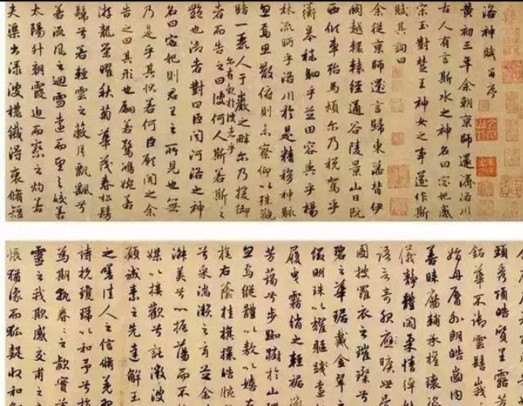 洛神賦 并序
黃初三年余朝京師還濟洛川
古人有言斯水之神名曰宓妃感
宋玉對楚王神女之事遂作斯
賦其詞曰
余從京師言歸東藩背伊
闕越轘轅經通谷陵景山日既
西傾車殆馬煩爾乃稅駕乎
蘅皋秣駟乎芝田容與乎楊
林流眄乎洛川於是精移神駭
忽焉思散俯則未察仰以殊觀
睹一麗人于巖之畔爾乃援御
者而告之曰彼何人斯若斯之
豔也御者對曰臣聞河洛之神
名曰宓妃則君王之所見也無
乃是乎其狀若何臣願聞之余
告之曰其形也翩若驚鴻婉若
游龍榮曜秋菊華茂春松髣
髴兮若輕雲之蔽月飄颻兮
若流風之迴雪遠而望之皎若
太陽升朝霞迫而察之灼若
芙蕖出淥波穠纖得衷脩短
頸秀項皓質呈露
鉛華不御雲髻峨
善睞靨輔承權瓌
儀靜體閑柔情綽
圖披羅衣之璀璨兮
碧之華琚戴金翠之
綴明珠以耀軀踐遠
履曳霧綃之輕裾
芳藹兮步踟躕於山
忽焉縱體以遨以嬉左
桂右蔭桂旗攘皓腕
兮采湍瀨之玄芝余
淑美兮心振蕩而不
媒以接歡兮託微波
願誠素之先達解玉
之嗟佳人之信脩羌
詩抗瓊珶以和予兮指
為期執眷之款實兮
靈之我欺感交甫之
悵猶豫而狐疑收和